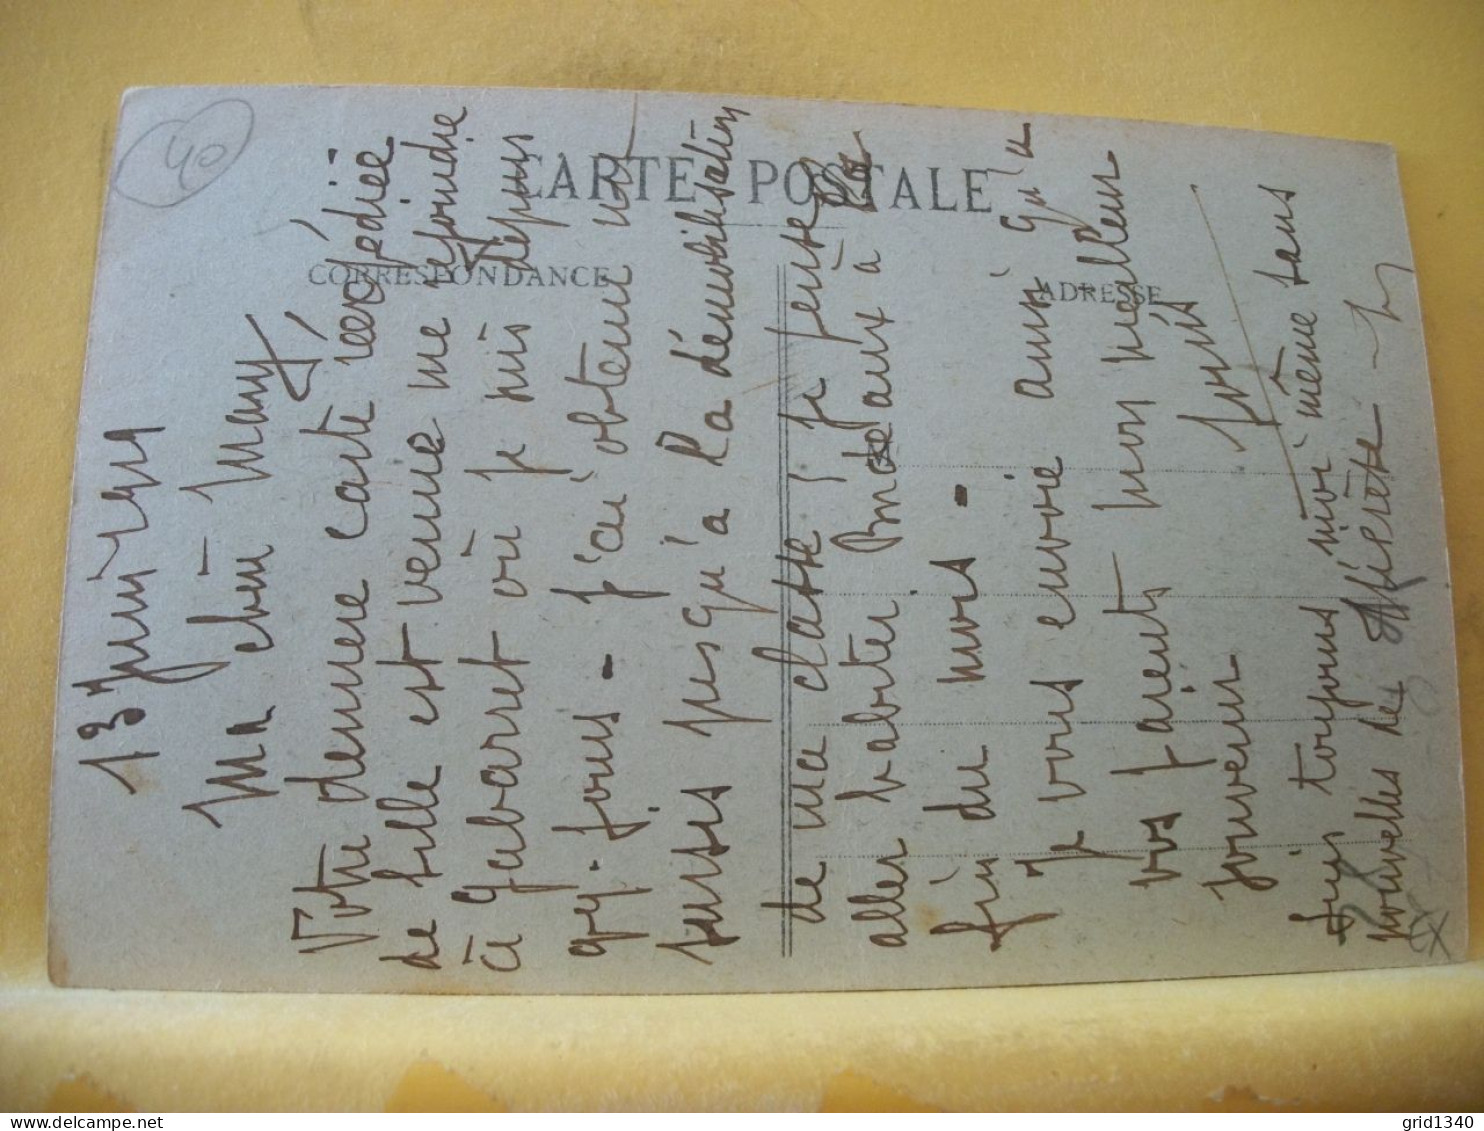 40
CARTE POSTALE
CORRESPONDANCE
ADRESSE
13 Juin 1919
Ma chèr Mary
Votre dernière carte réexpédiée
de Lille est venue me rejoindre
à Gabarret où je suis depuis
qq. jours - j'ai obtenu un
sursis jusqu'a la démobilisation
de ma classe, je pense
aller habiter Bordeaux à la
fin du mois -
Je vous envoie ainsi qu'a
vos parents mon meilleur
souvenir
Louis
Suis toujours moi même sans
nouvelles de
grid1340